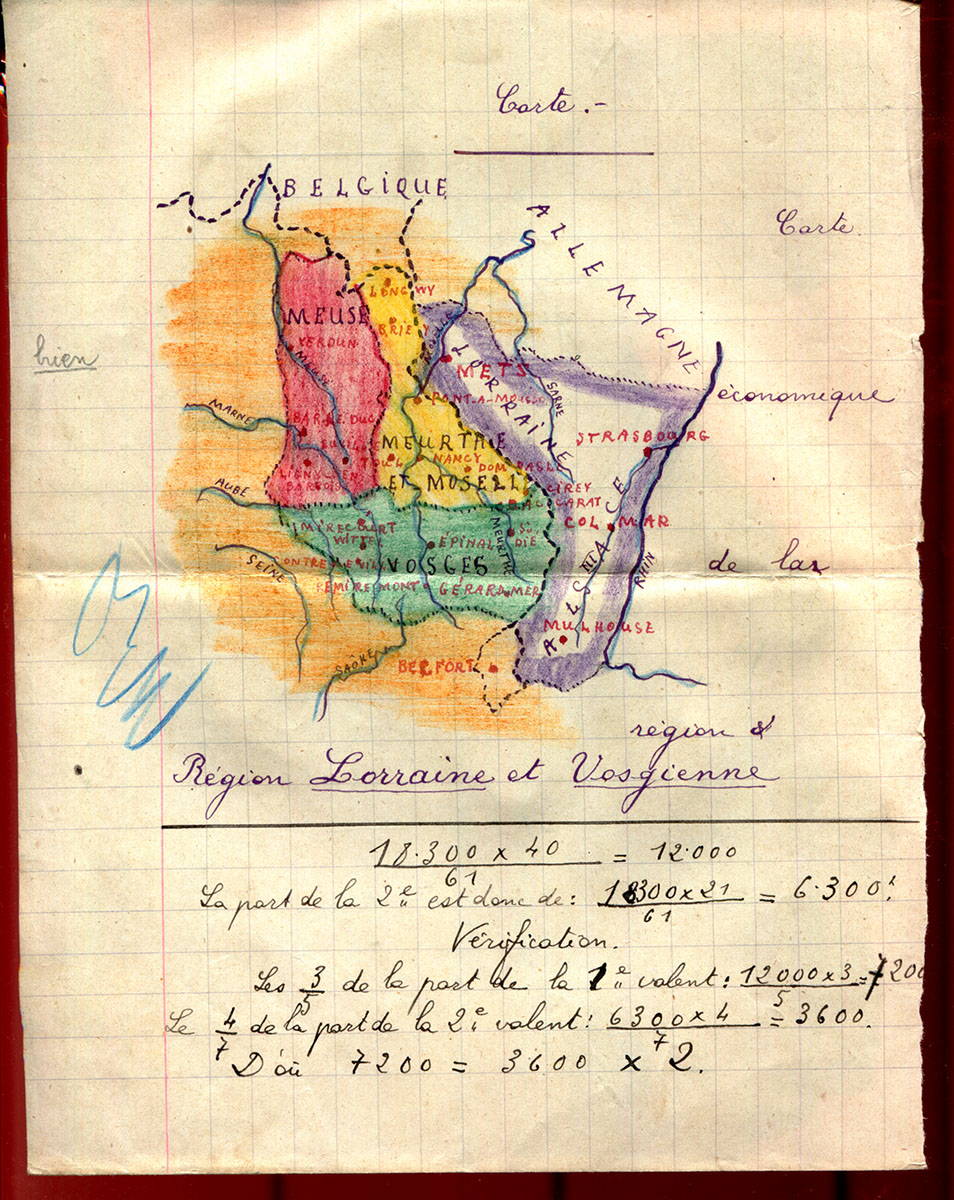 Carte.-
BELGIQUE
ALLEMAGNE
Carte
LONGWY
MEUSE
BRIEY
VERDUN
bien
MEUSE
MOSELLE
LORRAINE
METZ
SARNE
PONT-A-MOUSSON
économique
MARNE
BAR-LE-DUC
MEURTHE
STRASBOURG
TOUL
NANCY
DOMBASLE
ET MOSELLE
LIGNY-EN
BARROIS
CIREY
AUBE
BACCARAT
ALSACE
COLMAR
MIRECOURT
ST
VITTEL
EPINAL
DIE
MEURTHE
ILL
RHIN
de la
SEINE
VOSGES
REMIREMONT
GÉRARDMER
MULHOUSE
SAÔNE
BELFORT
région &
Région Lorraine et Vosgienne
18.300 x 40 / 61 = 12.000
La part de la 2e est donc de: 18300 x 21 / 61 = 6.300f
Vérification.
Les 3/5 de la part de la 1e valent: 12000 x 3 / 5 = 7200
Le 4/7 de la part de la 2e valent: 6300 x 4 / 7 = 3600.
D'où 7200 = 3600 x 2.